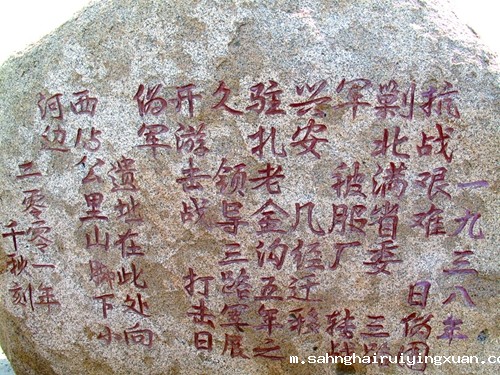 一九三八年
抗战艰难 日伪围
剿北满省委 三路
军 被服厂 转战
兴安 几经迁移
驻扎老金沟五年之
久 领导三路军展
开游击战 打击日
伪军
遗址在此处向
西
公里山脚下小
河边
二零零一年
千秋刻
m.sahnghairuiyingxuan.co